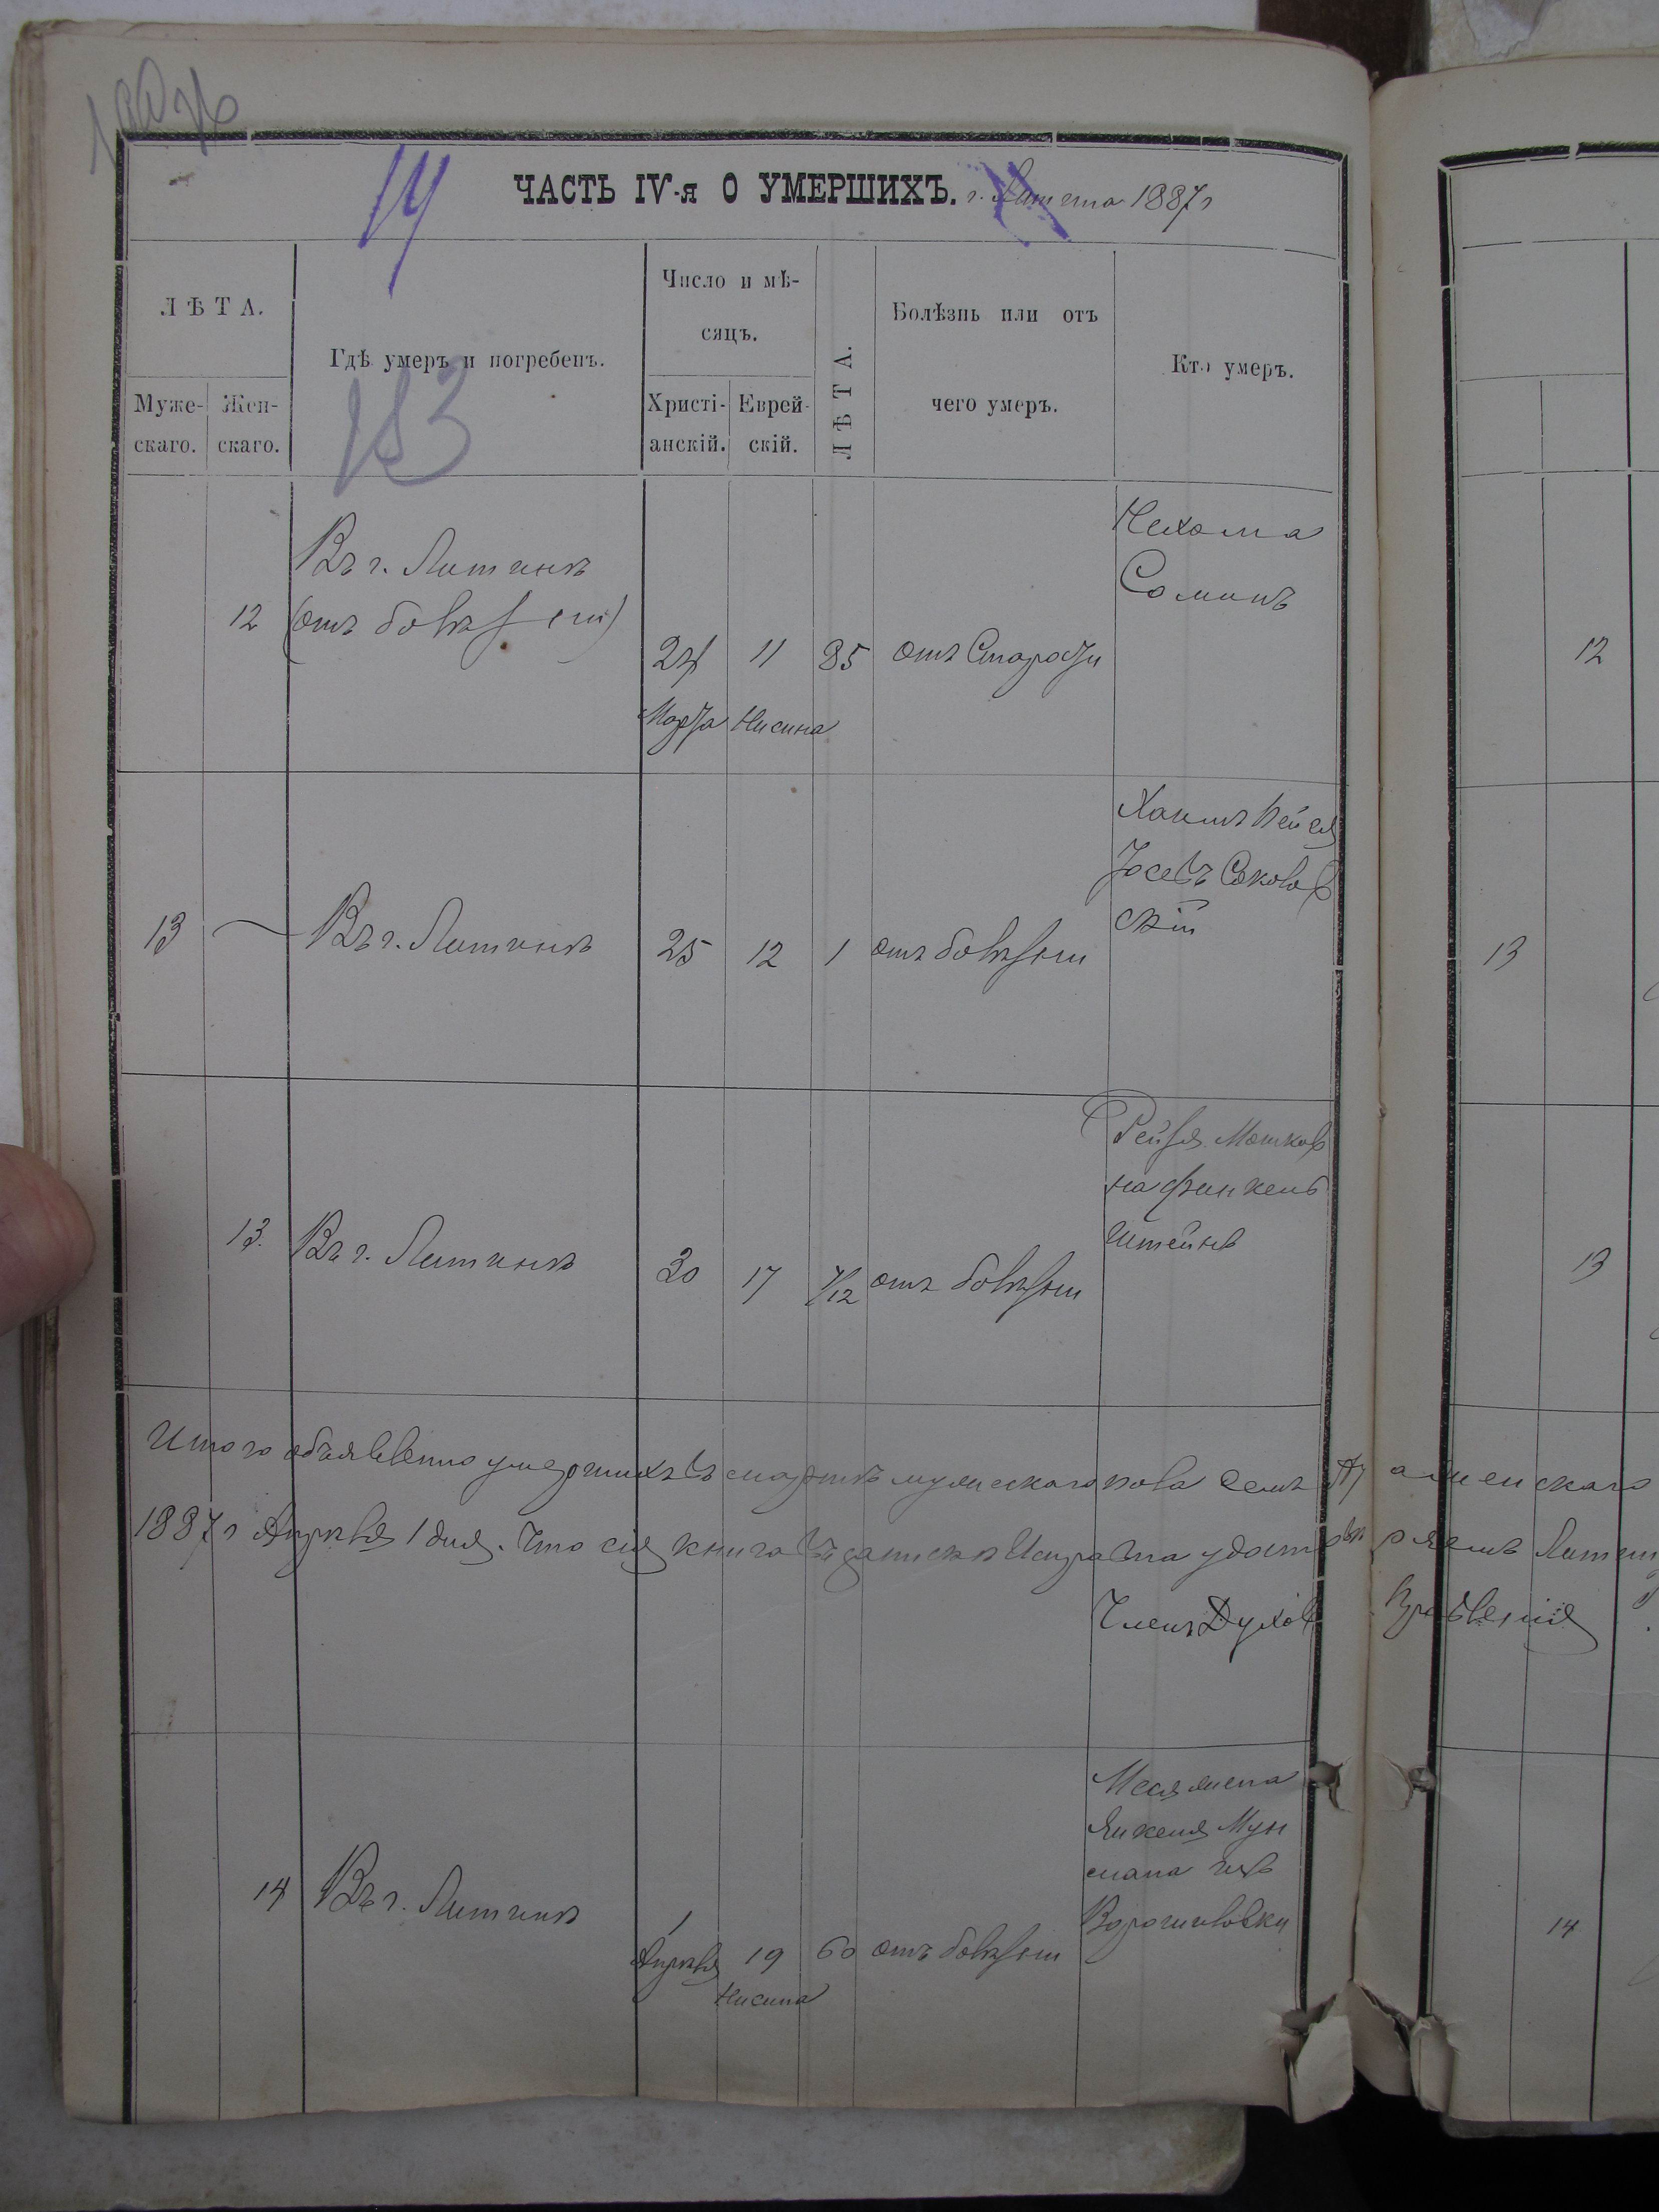 ЧАСТЬ IV-я О УМЕРШИХЪ. г. Литина 1887 г
14
183
ЛѢТА.
Муже-
скаго.
Жен-
скаго.
Гдѣ умеръ и погребенъ.
Число и мѣ-
сяцъ.
Христі-
анскій.
Еврей-
скій.
ЛѢТА.
Болѣзнь или отъ
чего умеръ.
Кто умеръ.
12
Въ г. Литинѣ
(отъ болѣзни)
24
Марта
11
Нисина
85
отъ Старости
Нехома
Соминъ
12
13
Въ г. Литинѣ
25
12
1
отъ болѣзни
Хаимъ Лейба
Іосевъ Соколов
скій
13
13.
Въ г. Литинѣ
30
17
7/12
отъ болѣзни
Рейзя Мошков
на Финкель
штейнъ
13
Итого объявленно умершихъ въ мартѣ мужескаго пола семь
1887 г Апрѣля 1 дня. Что сія книга въ запискѣ Исправна удостовѣряемъ
Членъ Духов Правленія
14
Въ г. Литинѣ
1
Апрѣля
19
Нисина
60
отъ болѣзни
жена
Янкеля
изъ
Ворошиловки
14